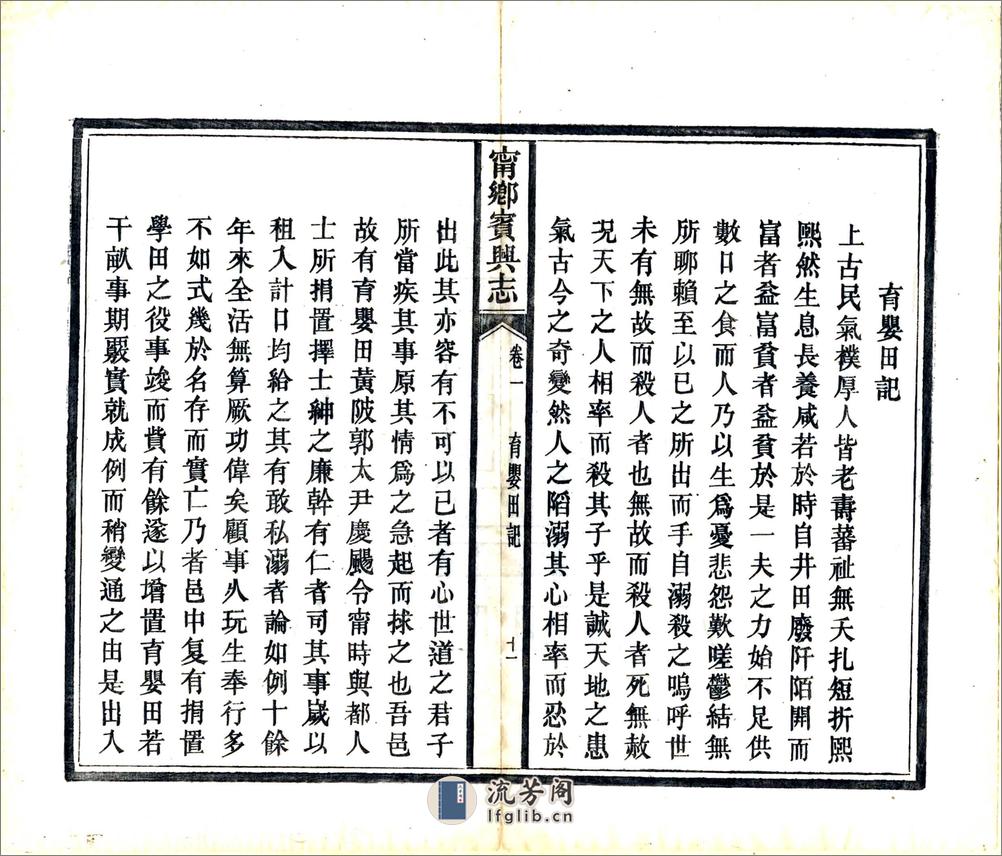 育嬰田記
上古民氣樸厚人皆老壽蕃祉無夭扎短折熙
熙然生息長養咸若於時自井田廢阡陌開而
富者益富貧者益貧於是一夫之力始不足供
數口之食而人乃以生爲憂悲怨歎嗟鬱結無
所聊賴至以己之所出而手自溺殺之嗚呼世
未有無故而殺人者也無故而殺人者死無赦
况天下之人相率而殺其子乎是誠天地之患
氣古今之奇變然人之陷溺其心相率而忍於
甯鄉賓興志
卷一
育嬰田記
十一
出此其亦容有不可以已者有心世道之君子
所當疾其事原其情爲之急起而捄之也吾邑
故有育嬰田黃陂郭太尹慶颺令甯時與都人
士所捐置擇士紳之廉幹有仁者司其事歲以
租入計口均給之其有敢私溺者論如例十餘
年來全活無算厥功偉矣顧事久玩生奉行多
不如式幾於名存而實亡乃者邑中复有捐置
學田之役事竣而費有餘遂以增置育嬰田若
干畝事期覈實就成例而稍變通之由是出入
流芳阁
lfglib.cn